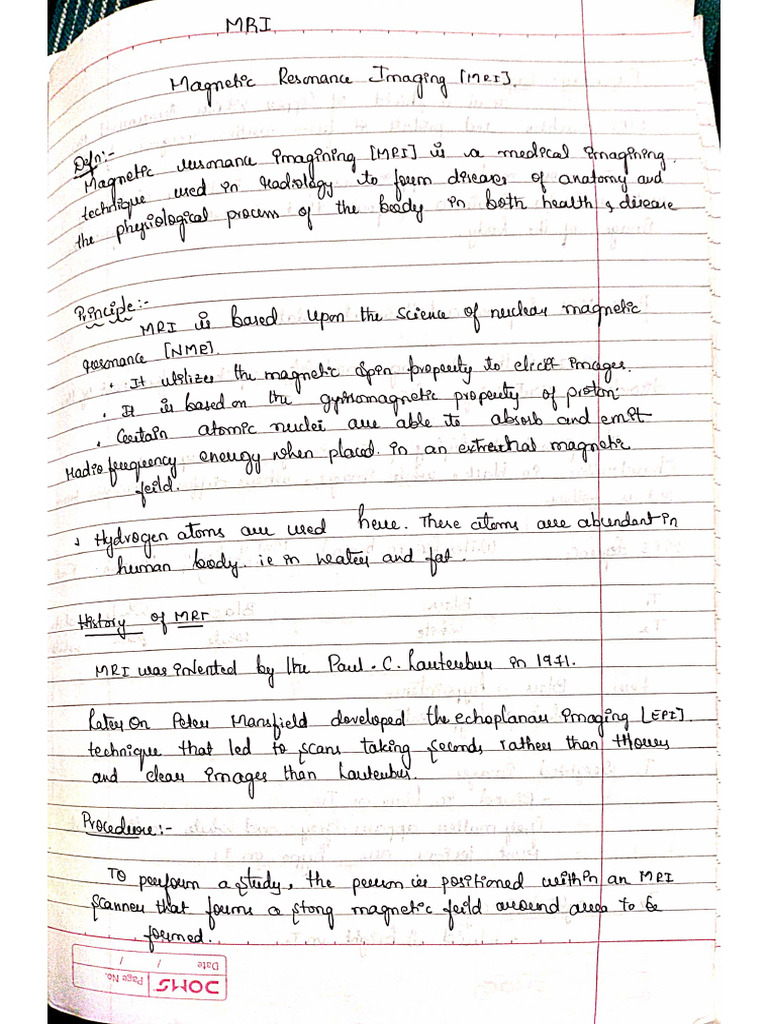 MRI
Magnetic Resonance Imaging [MRI].
Defn:-
Magnetic resonance imagining [MRI] is a medical imagining
technique used in radiology to form diseases of anatomy and
the physiological process of the body in both health & disease
Principle:-
MRI is based upon the science of nuclear magnetic
resonance [NMR].
• It utilizes the magnetic spin property to elicit images.
• It is based on the gyriomagnetic property of proton.
• Certain atomic nuclei are able to absorb and emit
radio frequency energy when placed in an extrernal magnetic
feild.
• Hydrogen atoms are used here. These atoms are abundant in
human body. ie in water and fat.
History of MRI
MRI was invented by the Paul. C. Lauterbur in 1971.
Later on Peter Mansfield developed the echoplanar imaging [EPI]
technique that led to scans taking seconds rather than hours
and clear images than Lauterbur.
Procedure:-
To perform a study, the person is positioned within an MRI
scanner that forms a stong magnetic feild around area to be
formed.
DOMS
Page No.
Date / /